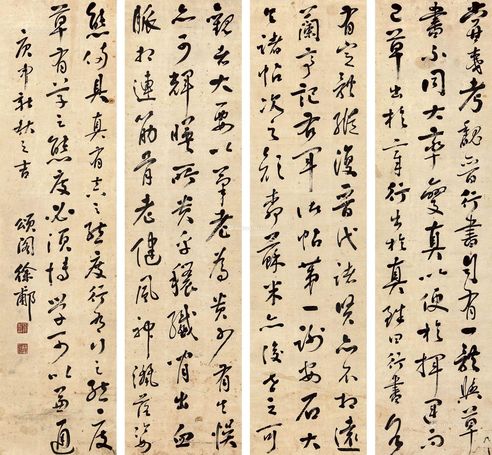 嘗夷考魏晉行書自有一體與草
書不同大率變真以便於揮運而
已草出於章行出於真雖曰行書各
有定體縱復晉代諸賢亦不相遠
蘭亭記右軍諸帖第一謝安石大
令諸帖次之顏柳蘇米亦後世之可
觀者大要以筆老為貴少有失悞
亦可輝暎所貴乎穠纖間出血
脈相連筋骨老健風神灑落姿
態備具真有真之態度行有行之態度
草有草之態度必須博學可以兼通
庚申新秋之吉
頌閣徐郙